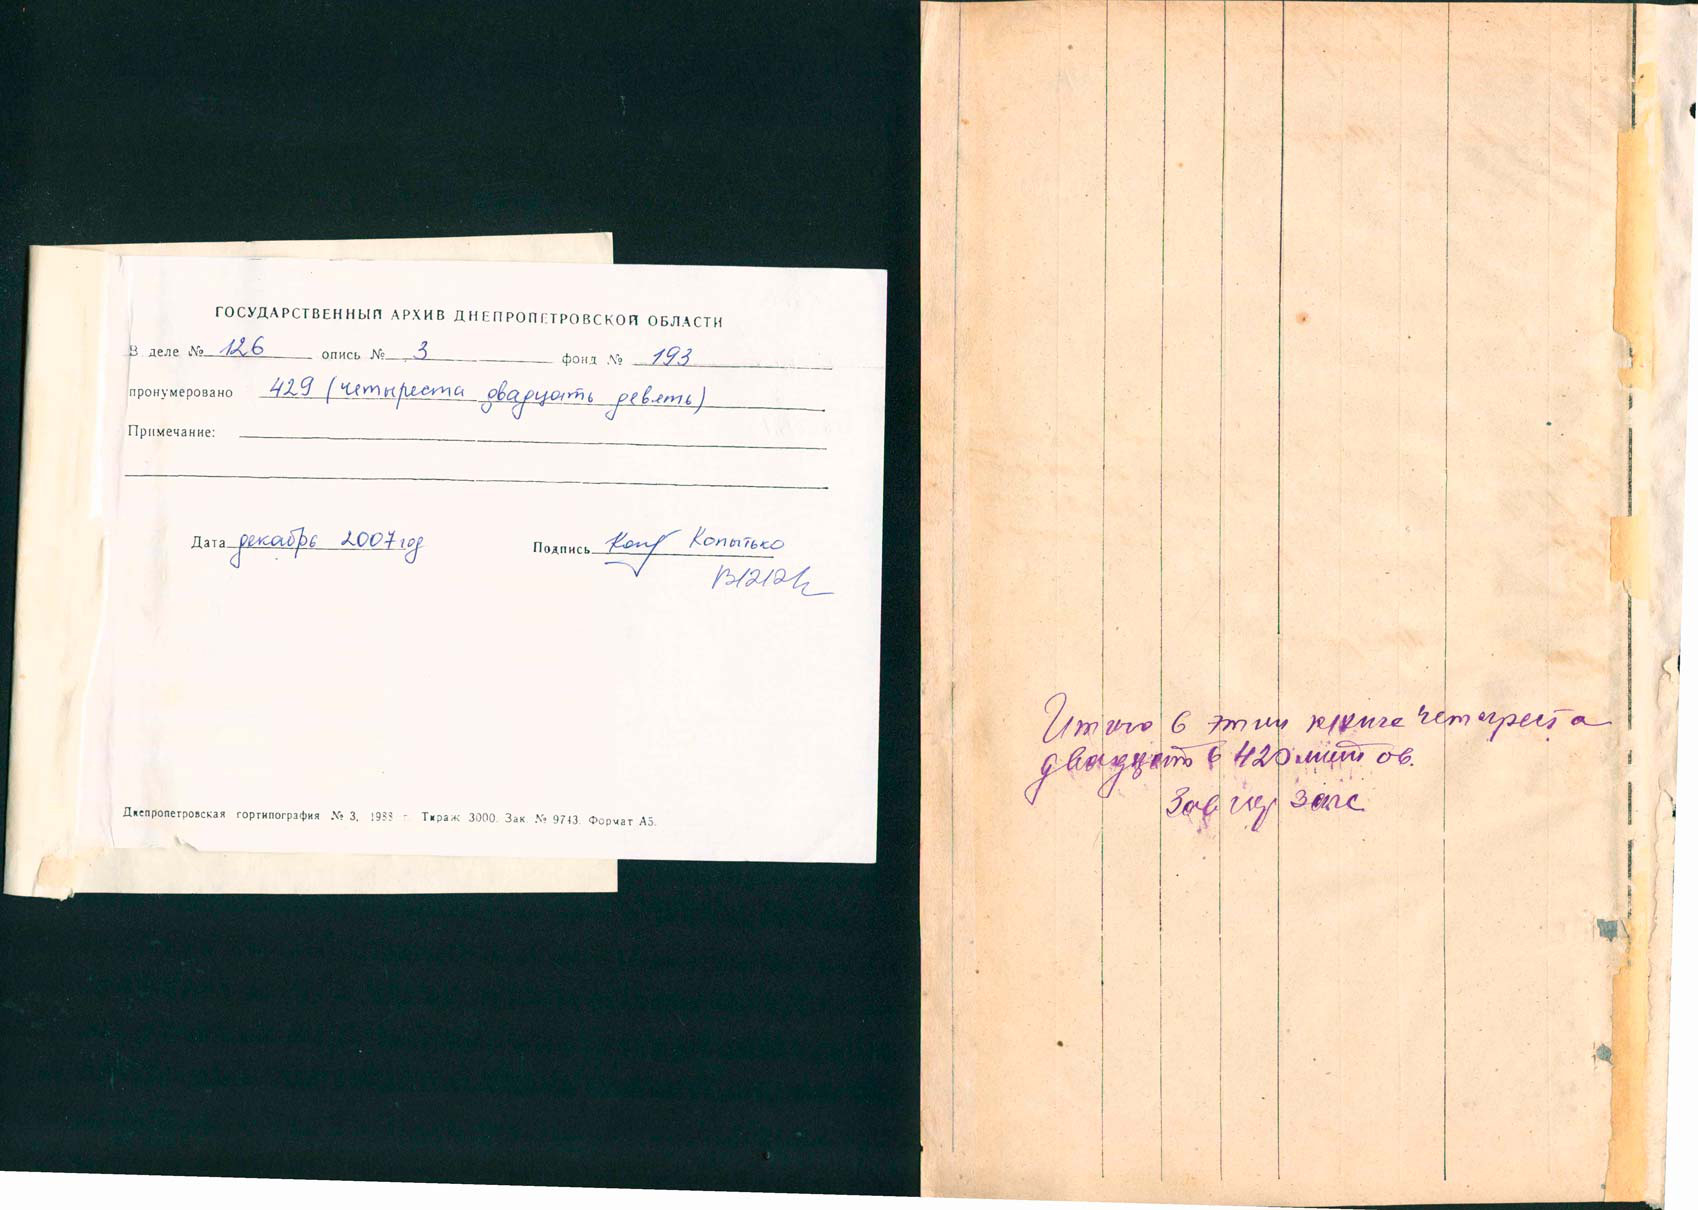 ГОСУДАРСТВЕННЫЙ АРХИВ ДНЕПРОПЕТРОВСКОЙ ОБЛАСТИ
В деле № 126 опись № 3 фонд № 193
пронумеровано 429 (четыреста двадцать девять)
Примечание:
Дата декабрь 2007 год Подпись Копытько
Днепропетровская гортипография № 3, 1988 г. Тираж 3000. Зак. № 9743. Формат А5.
Итого в этии книге четыреста
двадцать 420 листов.
Зав гор загс